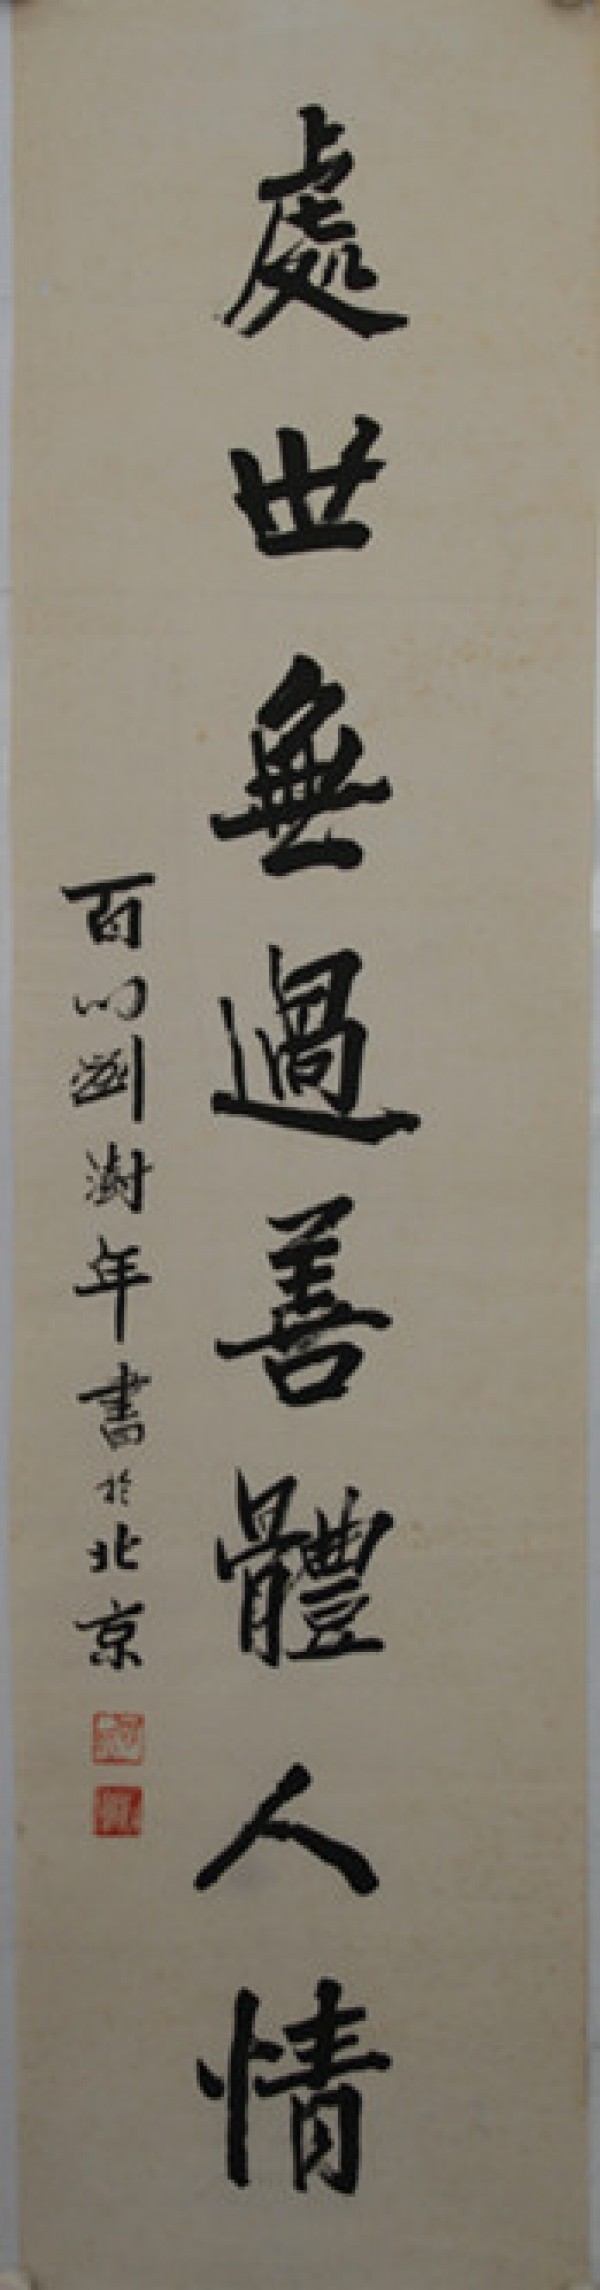 處世無過善體人情
百川劉澍年書於北京